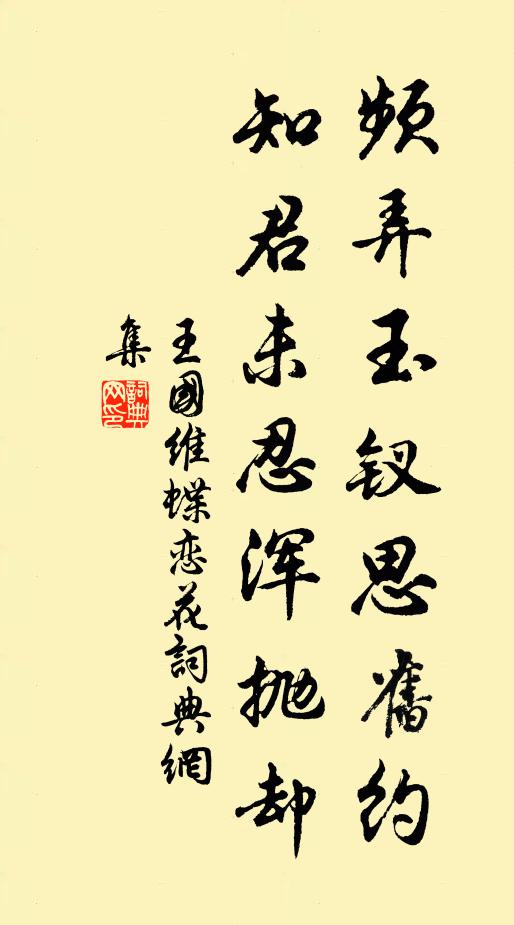 频弄玉钗思舊约
知君未忍浑抛却
王國维蝶恋花詞典網
集
詞典
网印